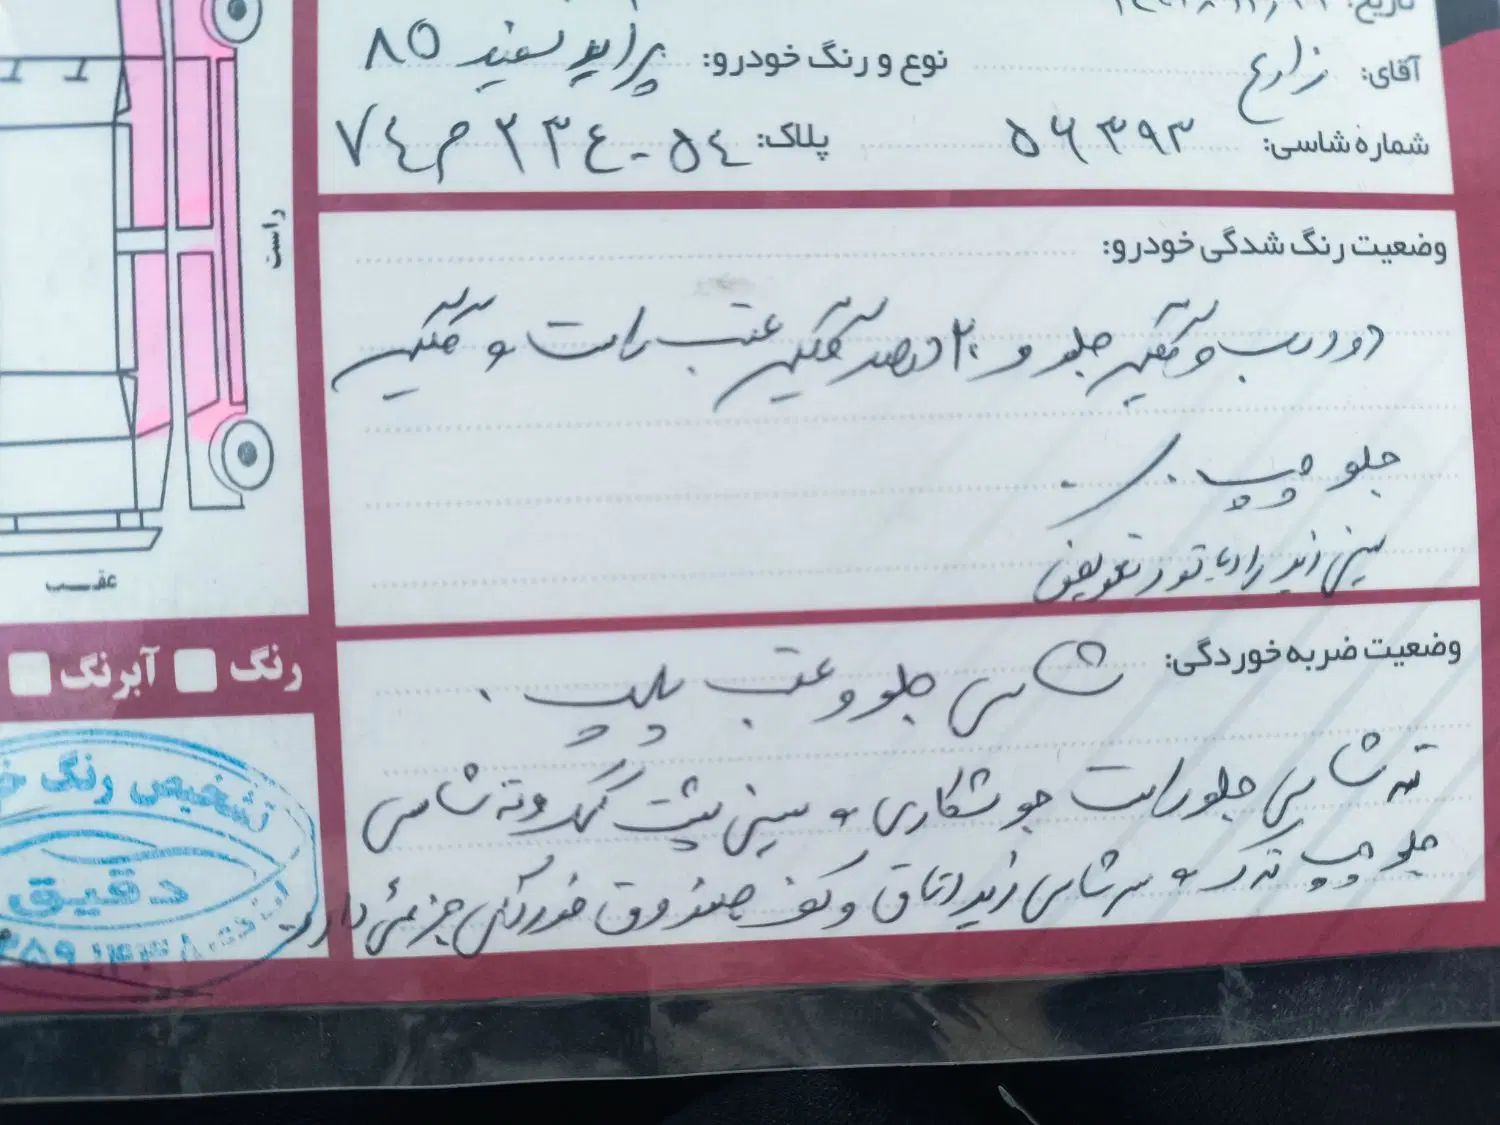 تاریخ:
آقای: زارع نوع و رنگ خودرو: پراید سفید ۸۵
شماره شاسی: ۵۶۳۹۳ پلاک: ۵۴ - ۲۳۴ م ۷۴
راست
وضعیت رنگ شدگی خودرو:
دو درب و گلگیر جلو و ۲۰ درصد گلگیر عقب راست و گلگیر
جلو چپ
سینی زیر رادیاتور تعویض
عقب
رنگ آبرنگ
وضعیت ضربه خوردگی: شاسی جلو و عقب پلمپ
ته شاسی جلو راست جوشکاری و سینی پشت گلگیر و ته شاسی
جلو چپ ترک و سرشاسی زیر اتاق و کف صندوق خوردگی جزئی دارد
تشخیص رنگ
دقیق